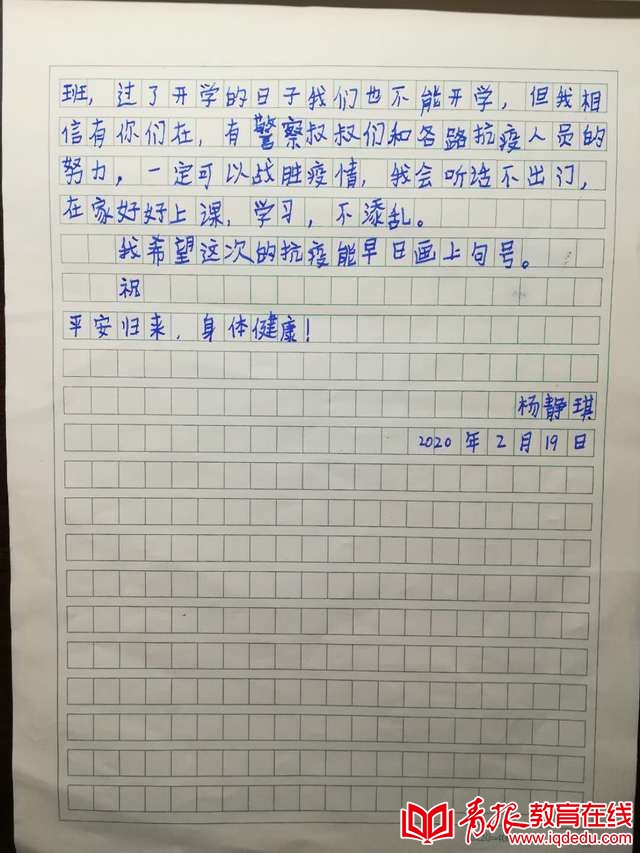 班，过了开学的日子我们也不能开学，但我相
信有你们在，有警察叔叔们和各路抗疫人员的
努力，一定可以战胜疫情，我会听话不出门，
在家好好上课，学习，不添乱。
我希望这次的抗疫能早日画上句号。
祝
平安归来，身体健康！
杨静琪
2020年2月19日
青报教育在线
www.iqdedu.com